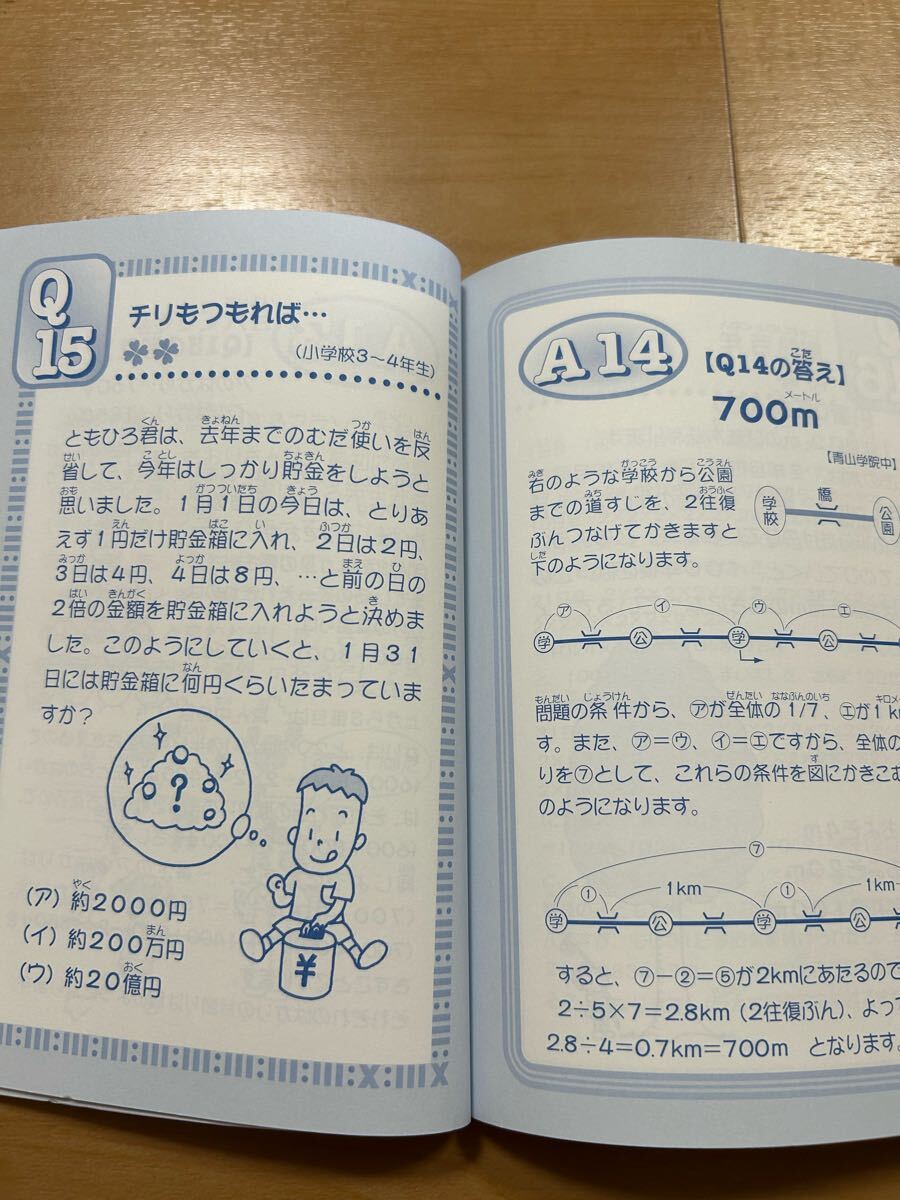 Q
15
チリもつもれば…
(小学校3～4年生)
ともひろ君は、去年までのむだ使いを反
省して、今年はしっかり貯金をしようと
思いました。1月1日の今日は、とりあ
えず1円だけ貯金箱に入れ、2日は2円、
3日は4円、4日は8円、…と前の日の
2倍の金額を貯金箱に入れようと決めま
した。このようにしていくと、1月31
日には貯金箱に何円くらいたまっていま
すか?
?
¥
(ア) 約2000円
(イ) 約200万円
(ウ) 約20億円
A14
【Q14の答え】
700m
【青山学院中】
右のような学校から公園
までの道すじを、2往復
ぶんつなげてかきますと
下のようになります。
学校 橋 公園
ア イ ウ エ
学 公 学 公
問題の条件から、㋐が全体の1/7、㋓が1k
す。また、㋐=㋒、㋑=㋓ですから、全体の
りを⑦として、これらの条件を図にかきこむ
のようになります。
⑦
① 1km ① 1km
学 公 学 公
すると、⑦-②=⑤が2kmにあたるので
2÷5×7=2.8km (2往復ぶん)、よっ
2.8÷4=0.7km=700m となります。